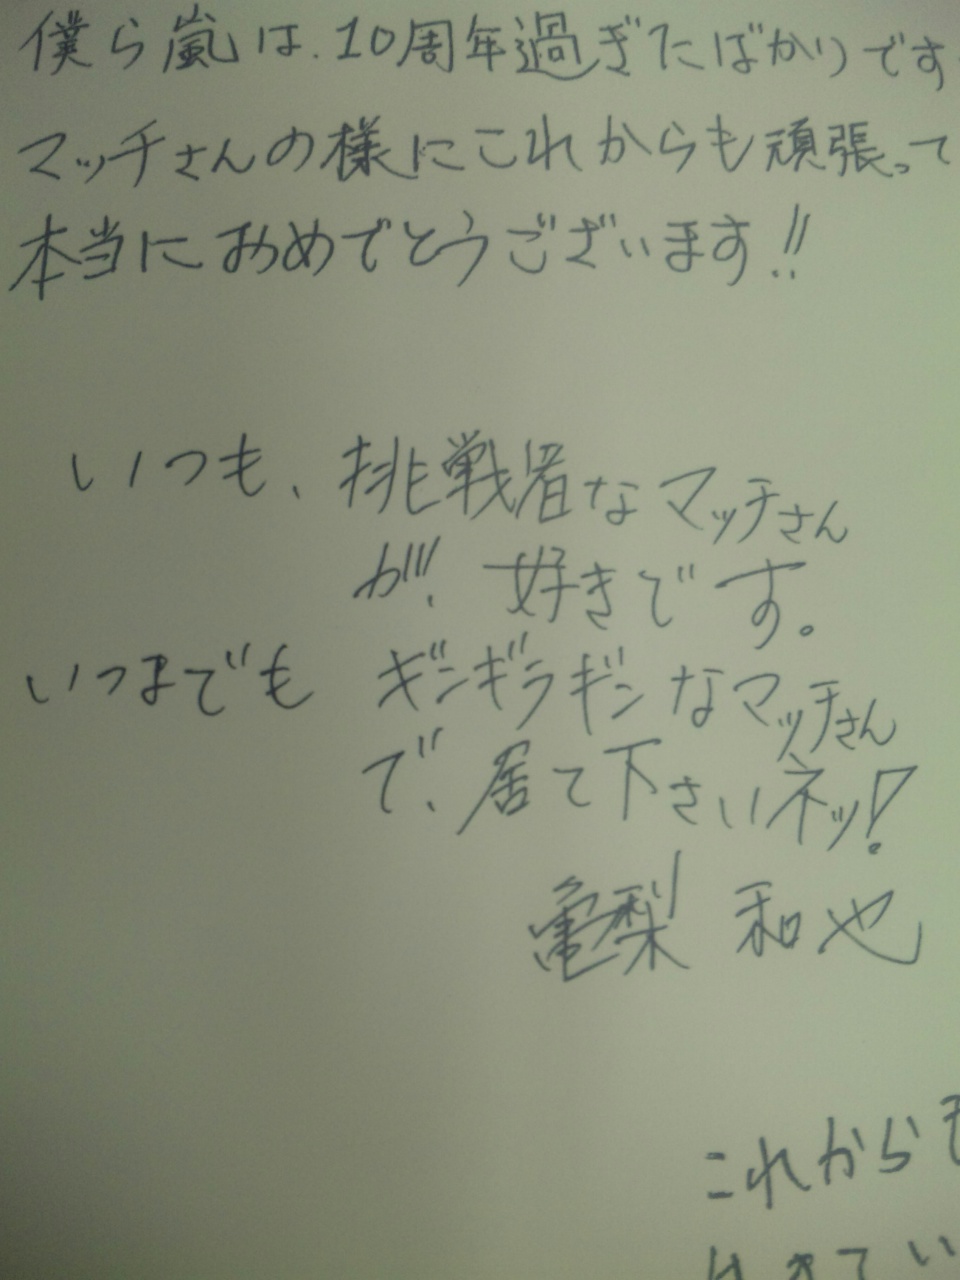 僕ら嵐は、10周年過ぎたばかりです
マッチさんの様にこれからも頑張って
本当におめでとうございます!!
いつも、挑戦者なマッチさん
が!! 好きです。
いつまでも ギンギラギンなマッチさん
で、居て下さいネッ!
亀梨 和也
これからも